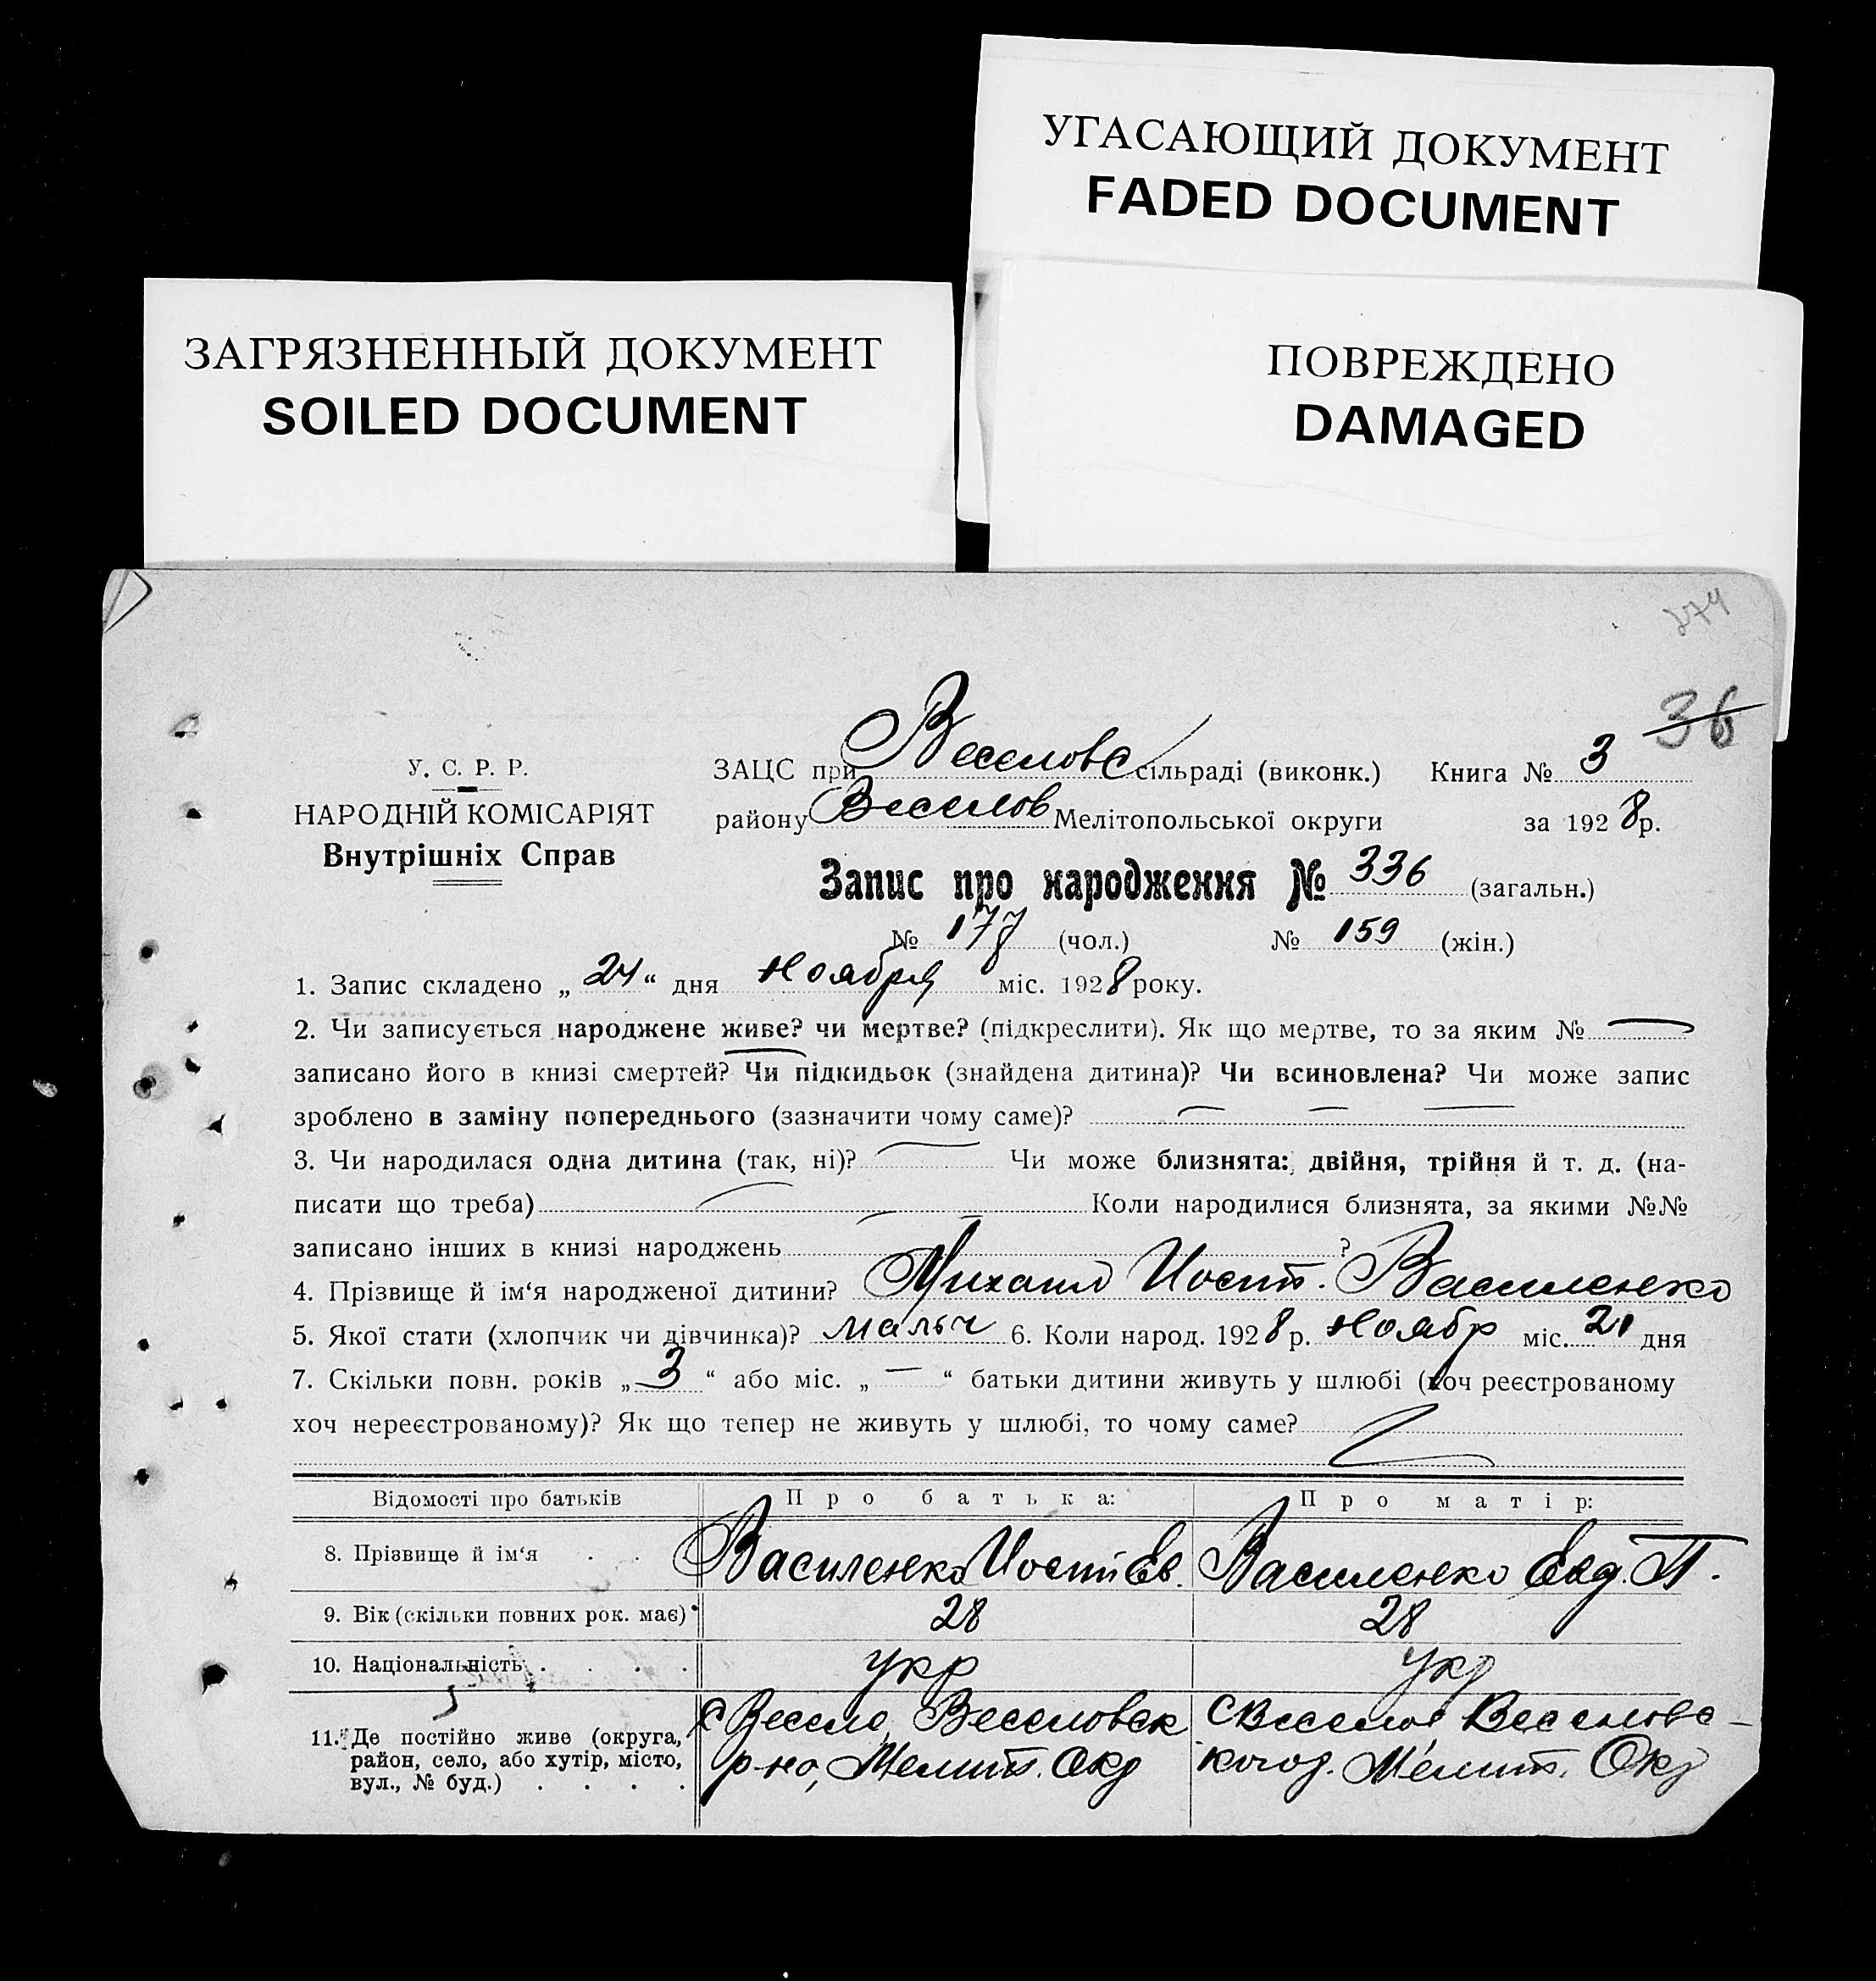 УГАСАЮЩИЙ ДОКУМЕНТ
FADED DOCUMENT
ЗАГРЯЗНЕННЫЙ ДОКУМЕНТ
SOILED DOCUMENT
ПОВРЕЖДЕНО
DAMAGED
274
36
У. С. Р. Р.
НАРОДНІЙ КОМІСАРІЯТ
Внутрішніх Справ
ЗАЦС при Веселовс сільраді (виконк.) Книга № 3
району Веселов Мелітопольської округи за 1928 р.
Запис про народження № 336 (загальн.)
№ 177 (чол.) № 159 (жін.)
1. Запис складено „ 24 “ дня Ноября міс. 1928 року.
2. Чи записується народжене живе? чи мертве? (підкреслити). Як що мертве, то за яким №
записано його в книзі смертей? Чи підкидьок (знайдена дитина)? Чи всиновлена? Чи може запис
зроблено в заміну попереднього (зазначити чому саме)? — — —
3. Чи народилася одна дитина (так, ні)? — Чи може близнята: двійня, трійня й т. д. (на-
писати що треба) — Коли народилися близнята, за якими №№
записано інших в книзі народжень — ?
4. Прізвище й ім‘я народженої дитини? Михаил Иосип. Василенко
5. Якої стати (хлопчик чи дівчинка)? Мальч 6. Коли народ. 1928 р. Ноябр міс. 21 дня
7. Скільки повн. років „ 3 “ або міс. „ — “ батьки дитини живуть у шлюбі (хоч реєстрованому
хоч нереєстрованому)? Як що тепер не живуть у шлюбі, то чому саме?
Відомості про батьків Про батька: Про матір:
8. Прізвище й ім‘я . . Василенко Иосип Ев. Василенко Евд. П.
9. Вік (скільки повних рок. має) 28 28
10. Національність . . . . укр укр
11. Де постійно живе (округа, с Весело, Веселовск С Веселое Веселовс-
район, село, або хутір, місто, р-но, Мелит. Окр Мелит. Окр
вул., № буд.) . . . .